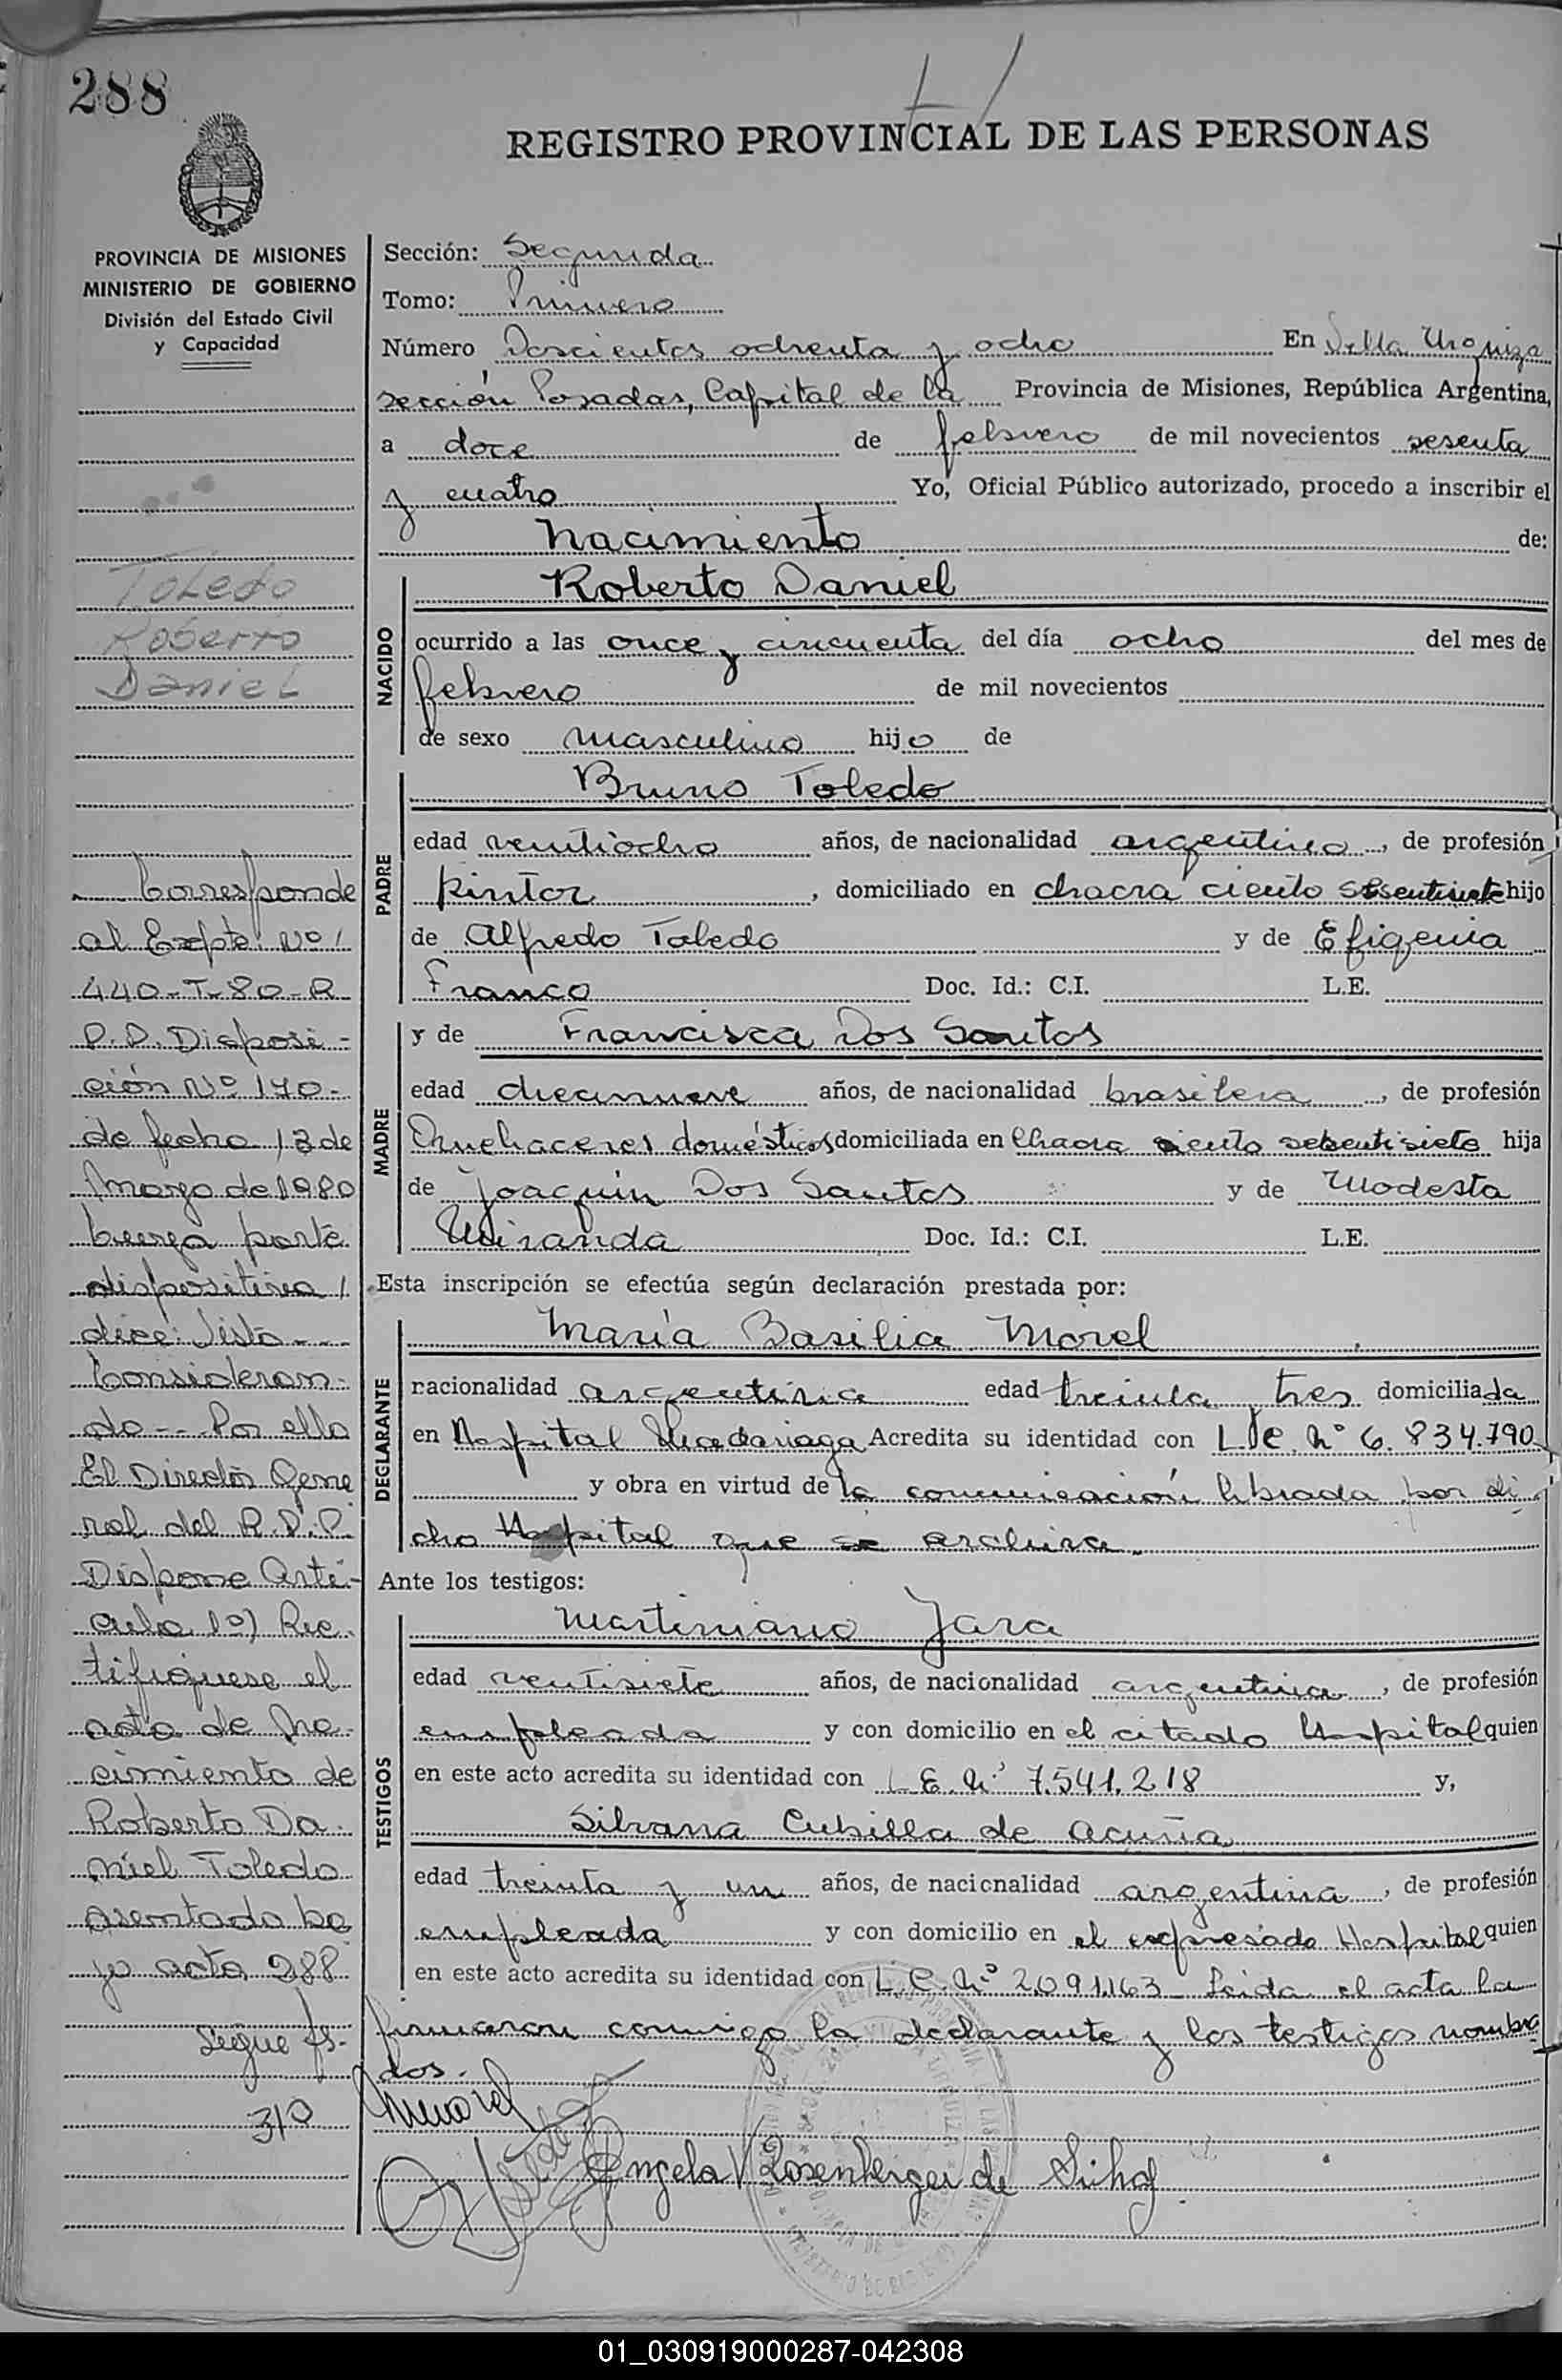 288
REGISTRO PROVINCIAL DE LAS PERSONAS
PROVINCIA DE MISIONES
MINISTERIO DE GOBIERNO
División del Estado Civil
y Capacidad
Toledo
Roberto
Daniel
Corresponde
al Expte. Nº
440-T-80-R
P.P. Disposi-
ción Nº 170-
de fecha 13 de
marzo de 1980
cuya parte
dispositiva
dice: Visto---
Consideran-
do--- Por ello
El Director Gene
ral del R.P.P.
Dispone Artí-
culo 1º) Rec-
tifíquese el
acta de na-
cimiento de
Roberto Da-
niel Toledo
asentada ba
jo acta 288
Sigue fs.
310
Sección: Segunda
Tomo: Primero
Número Doscientos ochenta y ocho En Villa Urquiza
sección Posadas, Capital de la Provincia de Misiones, República Argentina,
a doce de febrero de mil novecientos sesenta
y cuatro Yo, Oficial Público autorizado, procedo a inscribir el
nacimiento de:
NACIDO
Roberto Daniel
ocurrido a las once y cincuenta del día ocho del mes de
febrero de mil novecientos
de sexo masculino hijo de
PADRE
Bruno Toledo
edad ventiocho años, de nacionalidad argentino, de profesión
pintor, domiciliado en chacra ciento hijo
de Alfredo Toledo y de Efigenia
Franco Doc. Id.: C.I. L.E.
MADRE
y de Francisca Dos Santos
edad diecinueve años, de nacionalidad brasilera, de profesión
Quehaceres domésticos domiciliada en Chacra ciento hija
de Joaquin Dos Santos y de Modesta
Miranda Doc. Id.: C.I. L.E.
Esta inscripción se efectúa según declaración prestada por:
DECLARANTE
María Basilia Morel
nacionalidad argentina edad treinta y tres domiciliada
en Hospital Madariaga Acredita su identidad con L.C. Nº 6.834.790
y obra en virtud de la comunicación librada por di
cho Hospital que se archiva.
Ante los testigos:
TESTIGOS
Martiniano Jara
edad ventisiete años, de nacionalidad argentina, de profesión
empleada y con domicilio en el citado Hospital quien
en este acto acredita su identidad con L.E. Nº 7.541.218 y,
Silvana Cubilla de Acuña
edad treinta y un años, de nacionalidad argentina, de profesión
empleada y con domicilio en el expresado Hospital quien
en este acto acredita su identidad con L.C. Nº 2.091.163 - Leída el acta la
firmaron conmigo la declarante y los testigos nombra
dos.
Mmorel
Angela V Rosenberger de
01_030919000287-042308